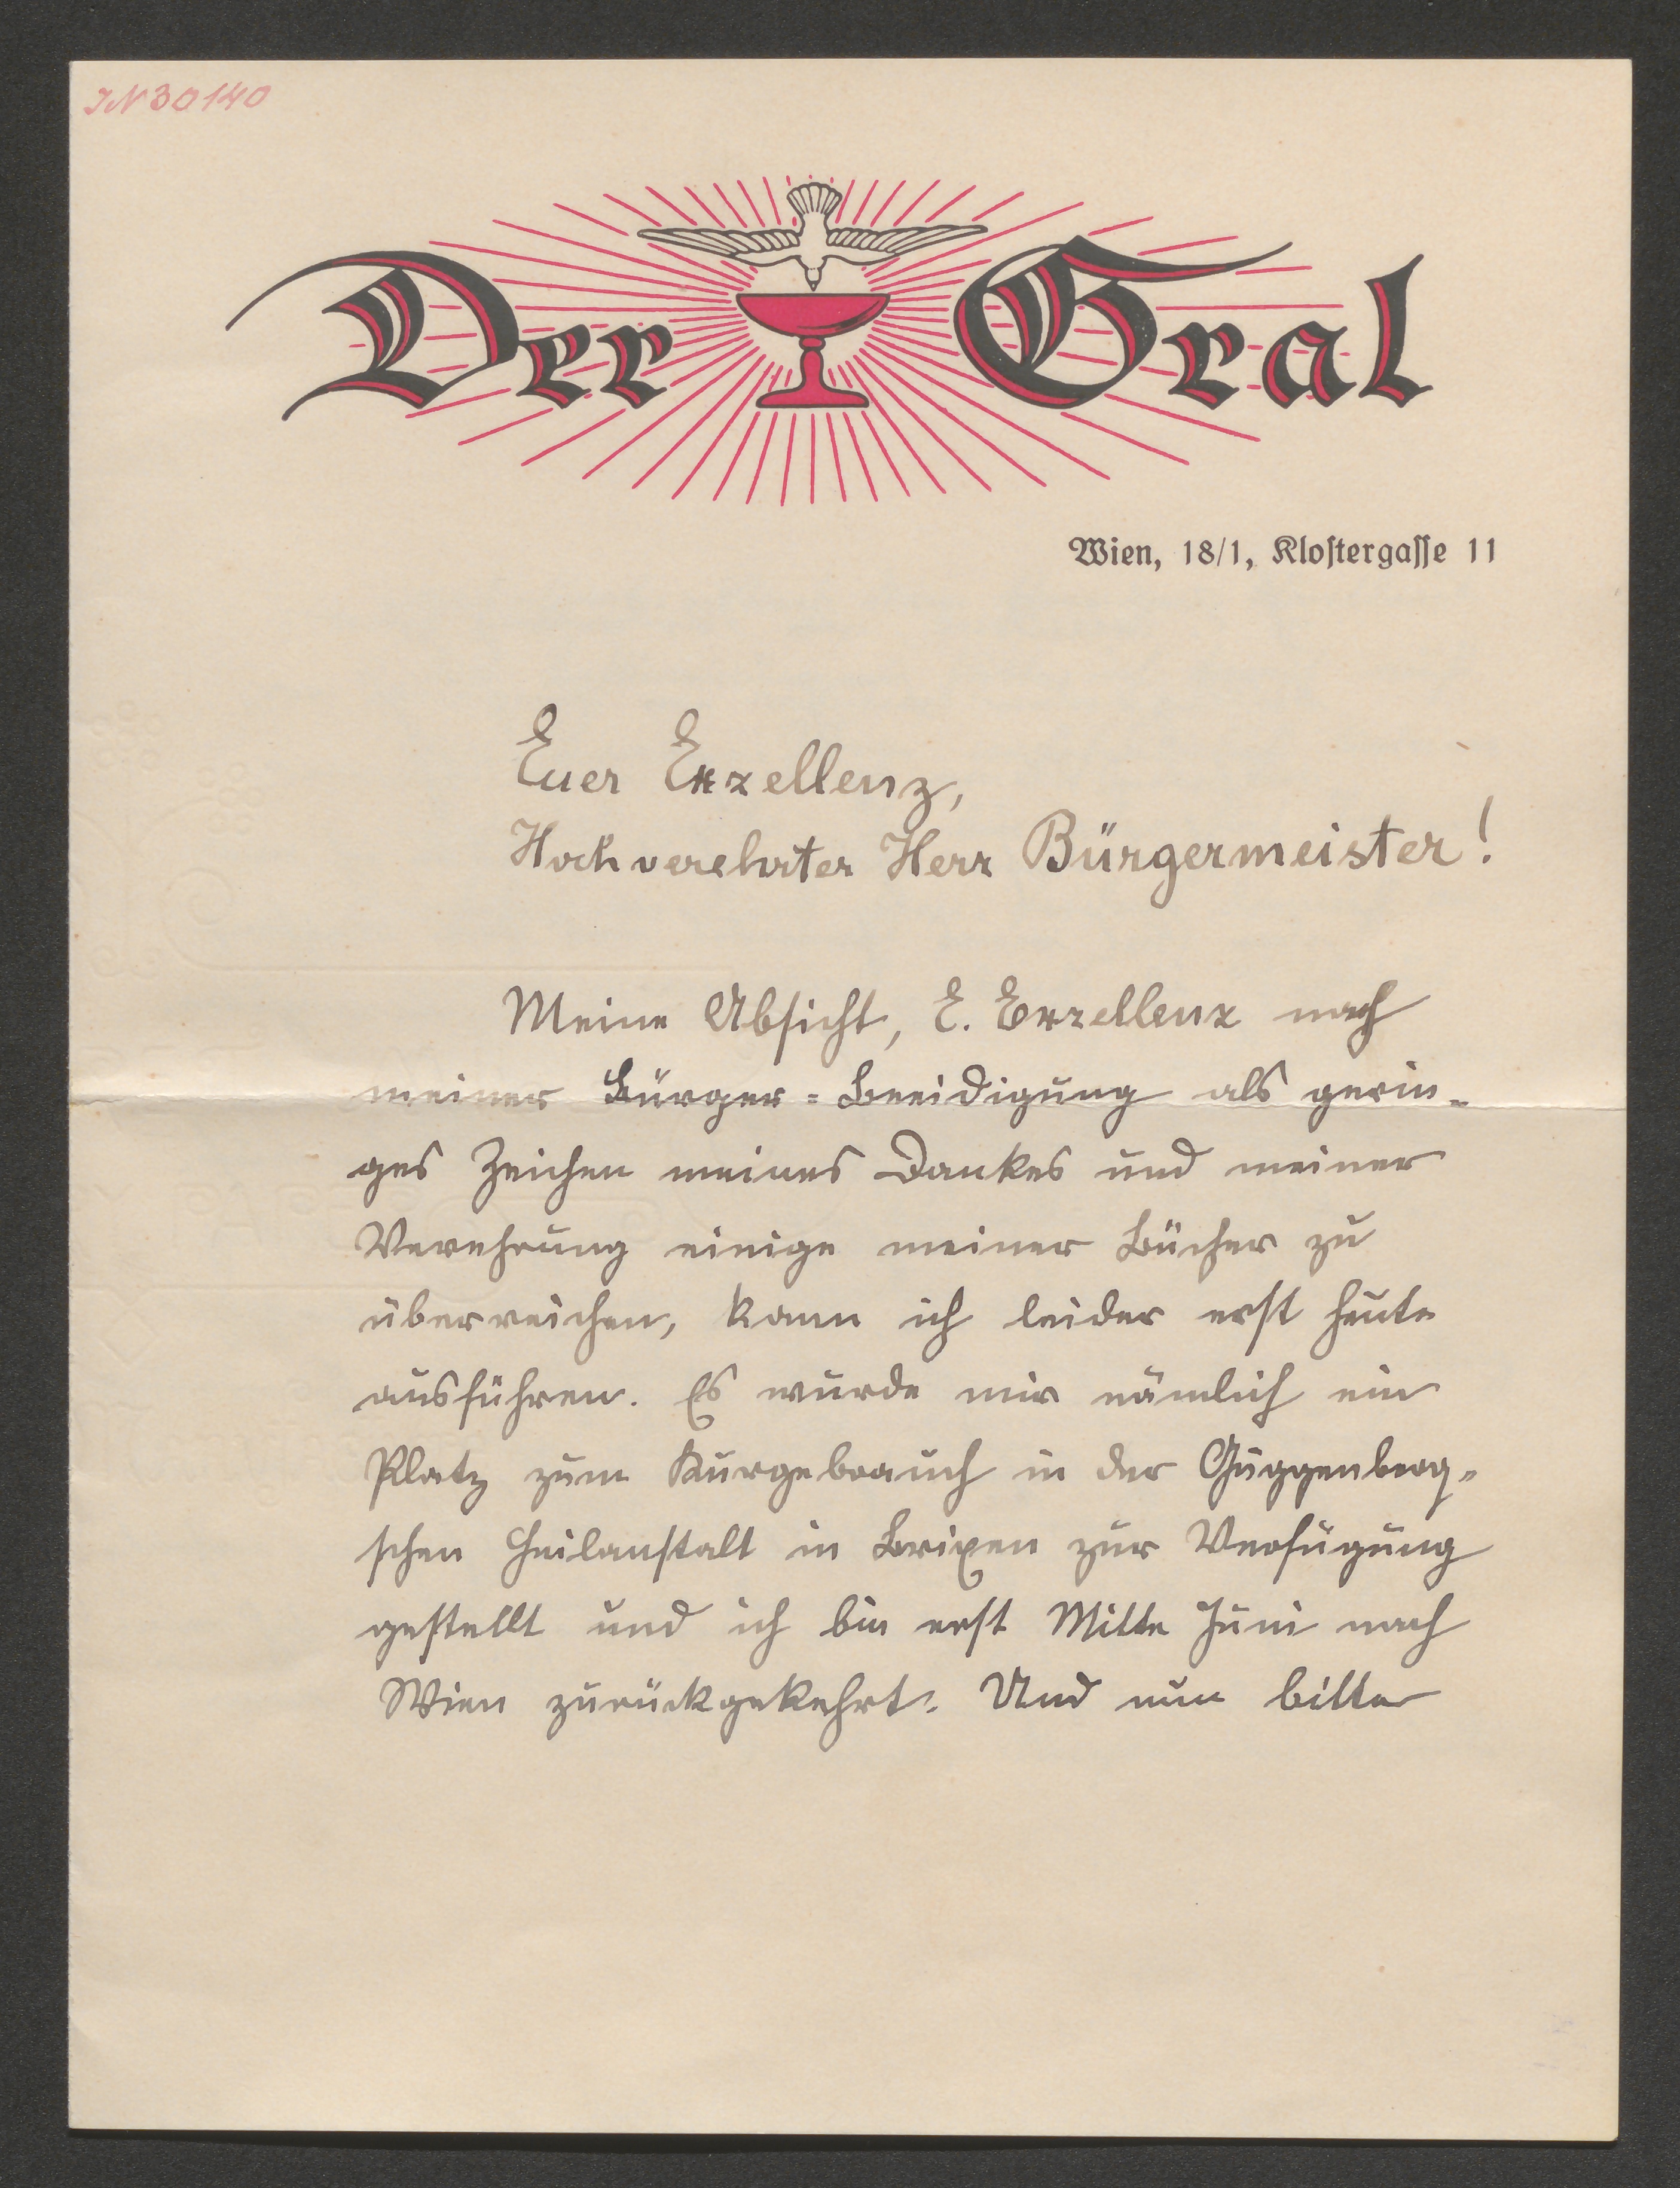 IN 30140
Der Gral
Wien, 18/1, Klostergasse 11
Euer Exzellenz,
Hochverehrter Herr Bürgermeister!
Meine Absicht, E. Exzellenz nach
meiner Bürger=Beeidigung als gerin-
ges Zeichen meines Dankes und meiner
Verehrung einige meiner Bücher zu
überreichen, kann ich leider erst heute
ausführen. Es wurde mir nämlich ein
Platz zum Kurgebrauch in der Guggenberg-
schen Heilanstalt in Brixen zur Verfügung
gestellt und ich bin erst Mitte Juni nach
Wien zurückgekehrt. Und nun bitte